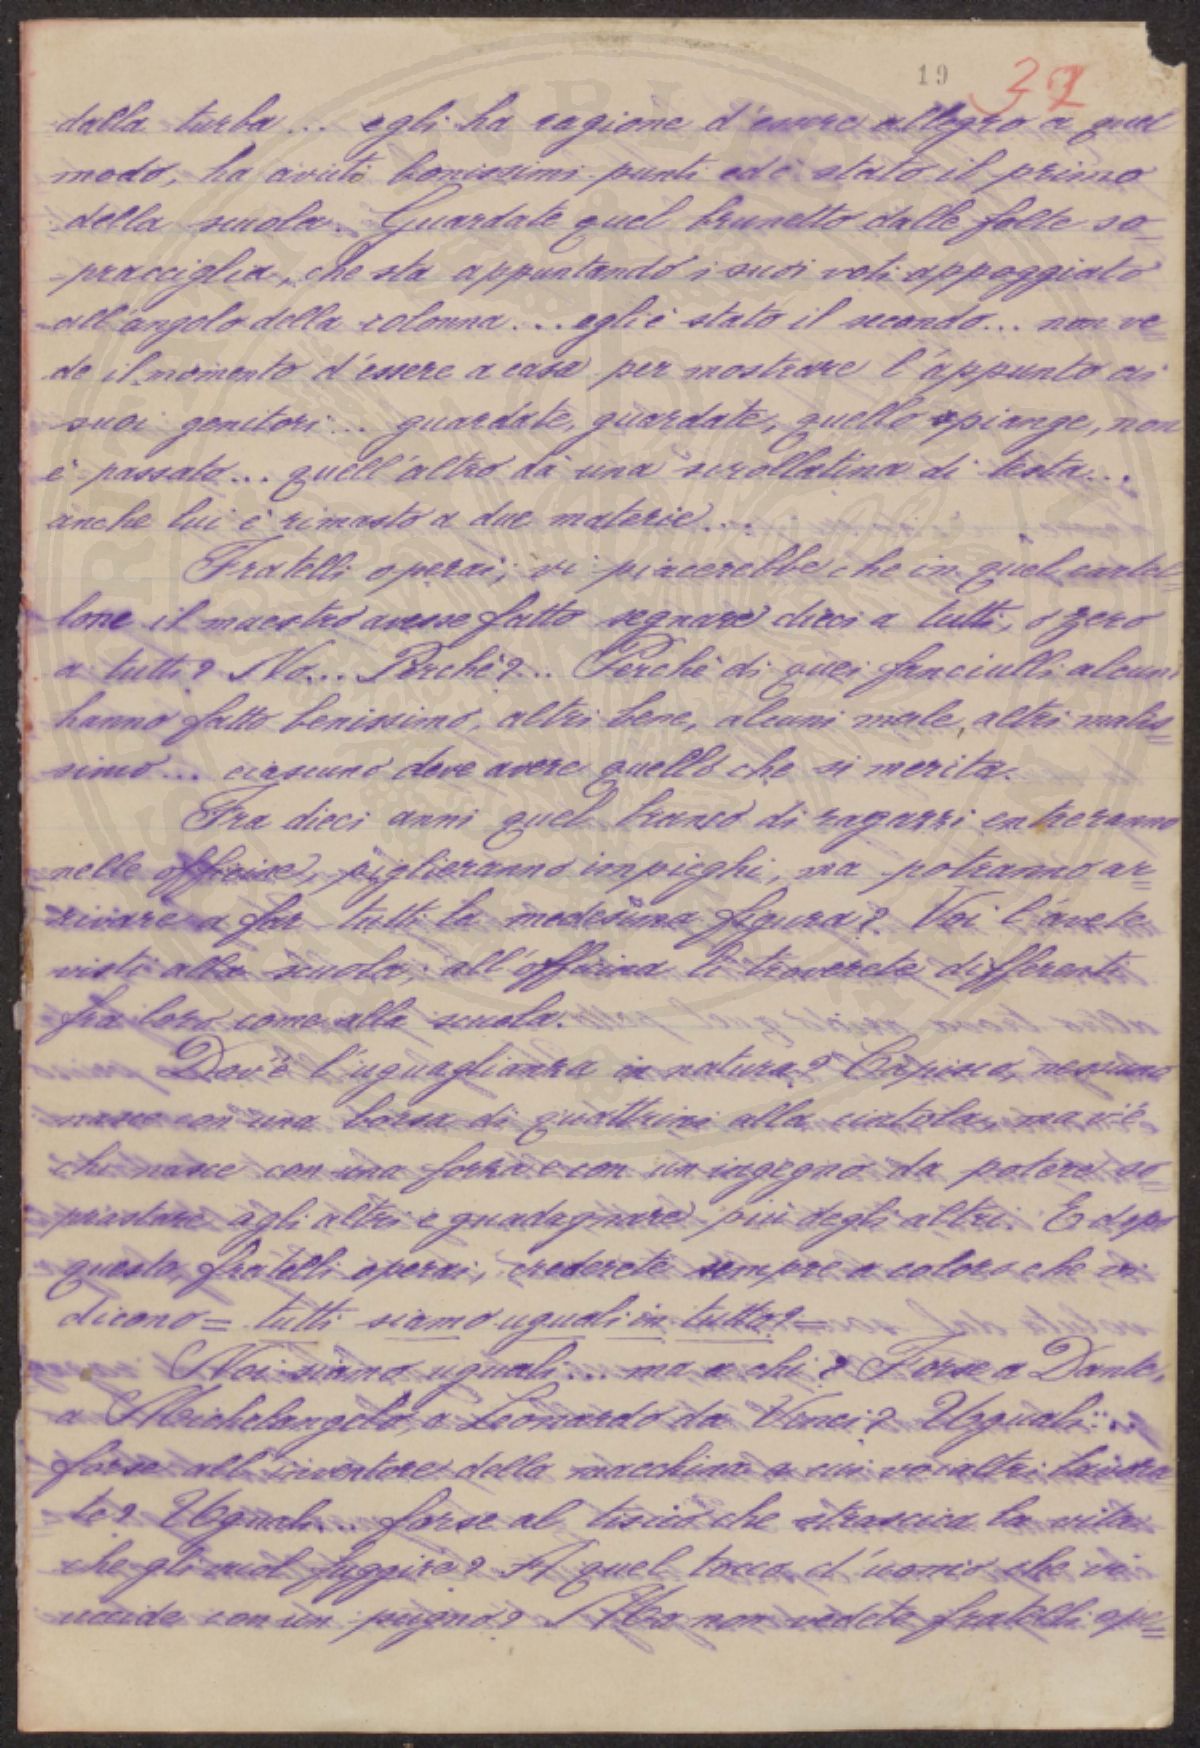 19 32
dalla turba... egli ha ragione d'essere allegro a quel
modo, ha avuto bonissimi punti ed è stato il primo
della scuola. Guardate quel brunetto dalle folte so=
pracciglia, che sta appuntando i suoi voti appoggiato
all'angolo della colonna... egli è stato il secondo... non ve=
de il momento d'essere a casa per mostrare l'appunto ai
suoi genitori... guardate, guardate, quello piange, non
è passato... quell'altro dà una scrollatina di testa...
anche lui è rimasto a due materie...
Fratelli operai, vi piacerebbe che in quel cartel=
lone il maestro avesse fatto segnare dieci a tutti, o zero
a tutti? No... Perchè?... Perchè di quei fanciulli alcuni
hanno fatto benissimo, altri bene, alcuni male, altri malis=
simo... ciascuno deve avere quello che si merita.
Fra dieci anni quel branco di ragazzi entreranno
nelle officine, piglieranno impieghi, ma potranno ar=
rivare a far tutti la medesima figura? Voi l'avete
visti alla scuola, all'officina li troverete differenti
fra loro come alla scuola.
Dov'è l'uguaglianza in natura? Capisco, nessuno
nasce con una borsa di quattrini alla ciatola, ma v'è
chi nasce con una forza e con un ingegno da potere so=
prastare agli altri e guadagnare più degli altri. E dopo
questo, fratelli operai, crederete sempre a coloro che vi
dicono = tutti siamo uguali in tutto? =
Noi siamo uguali... ma a chi? Forse a Dante,
a Michelangelo, a Leonardo da Vinci? Uguali...
forse all'inventore della macchina a cui voialtri lavora
te? Uguali... forse al tisico che strascica la vita
che gli vuol fuggire? A quel tocco d'uomo che vi
uccide con un pugno? Ma non vedete fratelli ope=